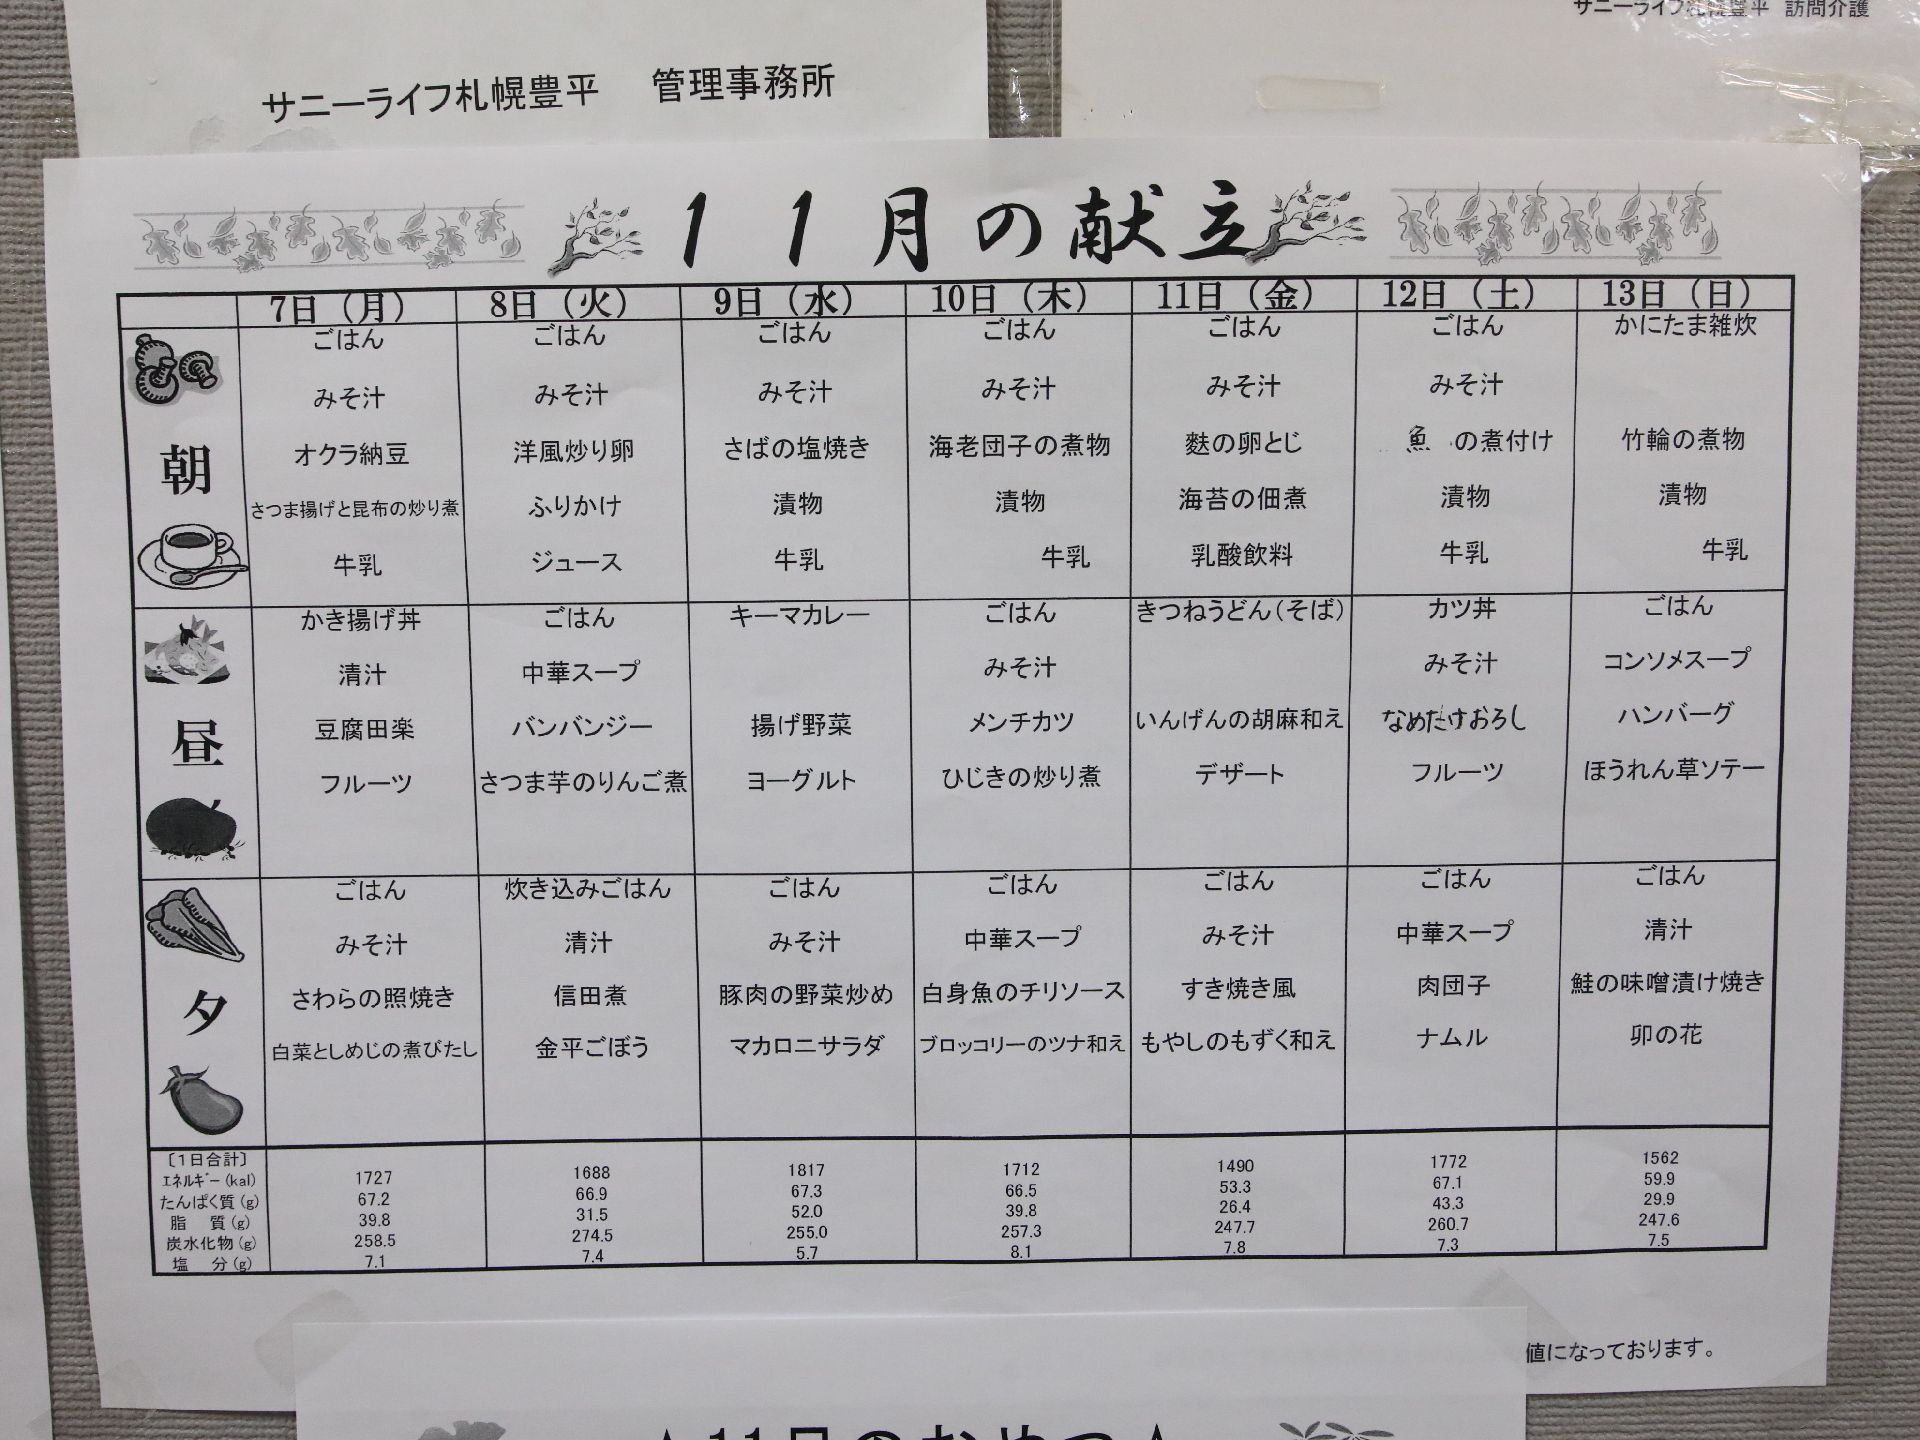 サニーライフ札幌豊平 管理事務所
サニーライフ札幌豊平 訪問介護
11月の献立
7日（月） 8日（火） 9日（水） 10日（木） 11日（金） 12日（土） 13日（日）
朝
ごはん ごはん ごはん ごはん ごはん ごはん かにたま雑炊
みそ汁 みそ汁 みそ汁 みそ汁 みそ汁 みそ汁
オクラ納豆 洋風炒り卵 さばの塩焼き 海老団子の煮物 麩の卵とじ 魚の煮付け 竹輪の煮物
さつま揚げと昆布の炒り煮 ふりかけ 漬物 漬物 海苔の佃煮 漬物 漬物
牛乳 ジュース 牛乳 牛乳 乳酸飲料 牛乳 牛乳
昼
かき揚げ丼 ごはん キーマカレー ごはん きつねうどん（そば） カツ丼 ごはん
清汁 中華スープ みそ汁 みそ汁 コンソメスープ
豆腐田楽 バンバンジー 揚げ野菜 メンチカツ いんげんの胡麻和え なめたけおろし ハンバーグ
フルーツ さつま芋のりんご煮 ヨーグルト ひじきの炒り煮 デザート フルーツ ほうれん草ソテー
夕
ごはん 炊き込みごはん ごはん ごはん ごはん ごはん ごはん
みそ汁 清汁 みそ汁 中華スープ みそ汁 中華スープ 清汁
さわらの照焼き 信田煮 豚肉の野菜炒め 白身魚のチリソース すき焼き風 肉団子 鮭の味噌漬け焼き
白菜としめじの煮びたし 金平ごぼう マカロニサラダ ブロッコリーのツナ和え もやしのもずく和え ナムル 卯の花
〔1日合計〕
ｴﾈﾙｷﾞｰ(kal) 1727 1688 1817 1712 1490 1772 1562
たんぱく質(g) 67.2 66.9 67.3 66.5 53.3 67.1 59.9
脂 質(g) 39.8 31.5 52.0 39.8 26.4 43.3 29.9
炭水化物(g) 258.5 274.5 255.0 257.3 247.7 260.7 247.6
塩 分(g) 7.1 7.4 5.7 8.1 7.8 7.3 7.5
値になっております。
★11月のおやつ★